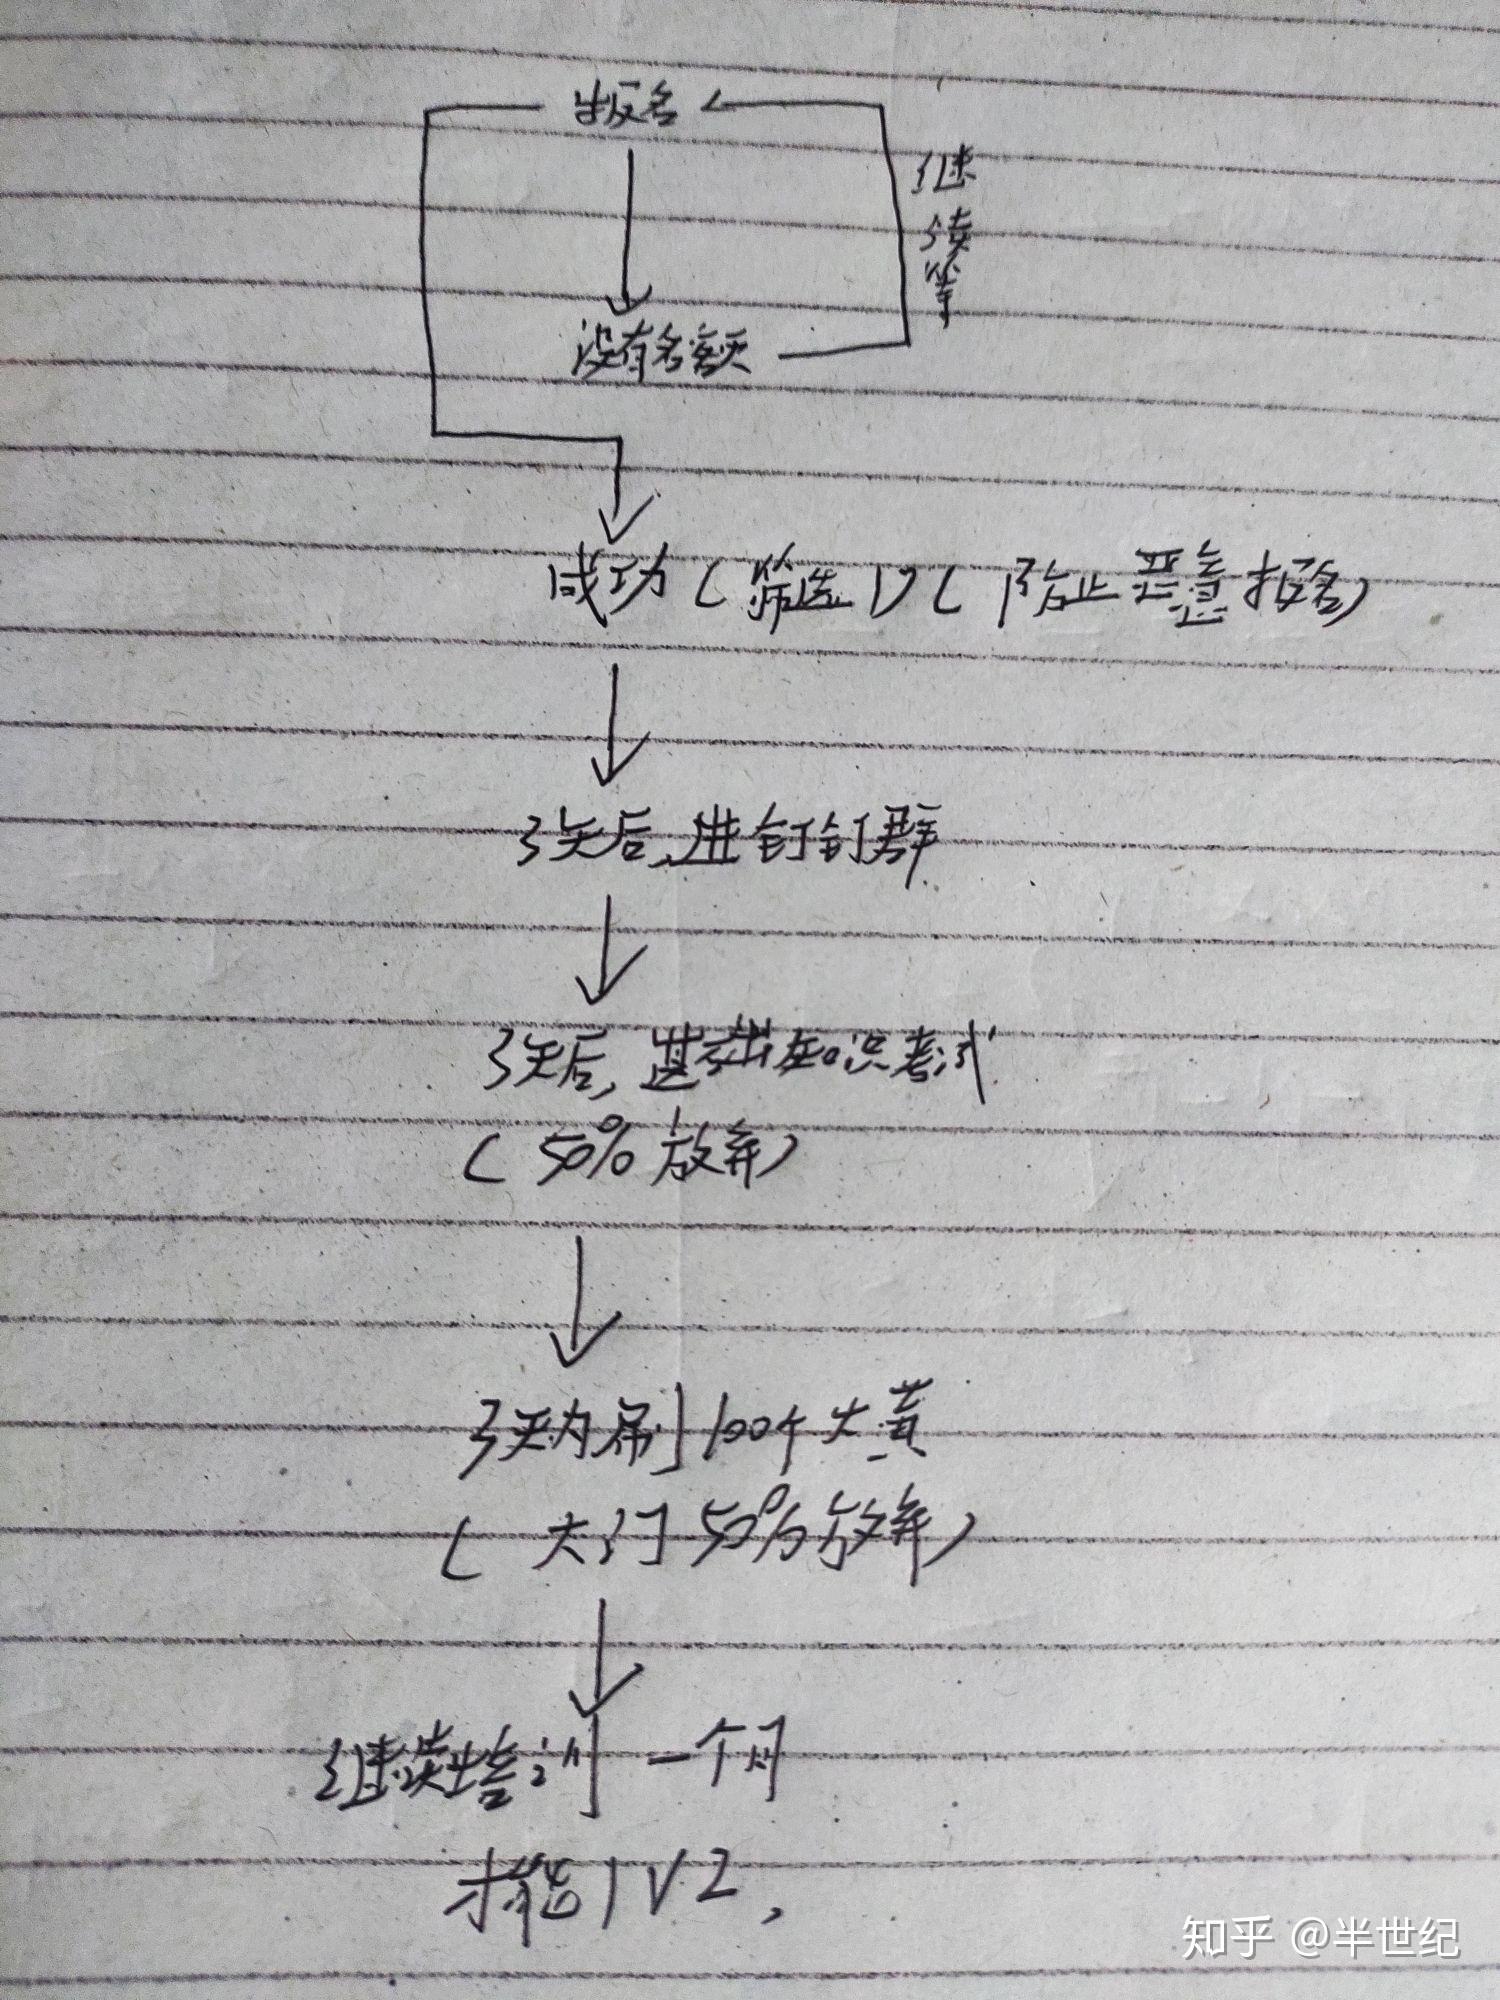 报名
继
续
等
没有名额
成功(筛选)(防止恶意报名)
3天后,进钉钉群
3天后,基础知识考试
(50%放弃)
3天内刷100个大黄
(大门50%放弃)
继续培训一个月
才能1V2,
知乎 @半世纪